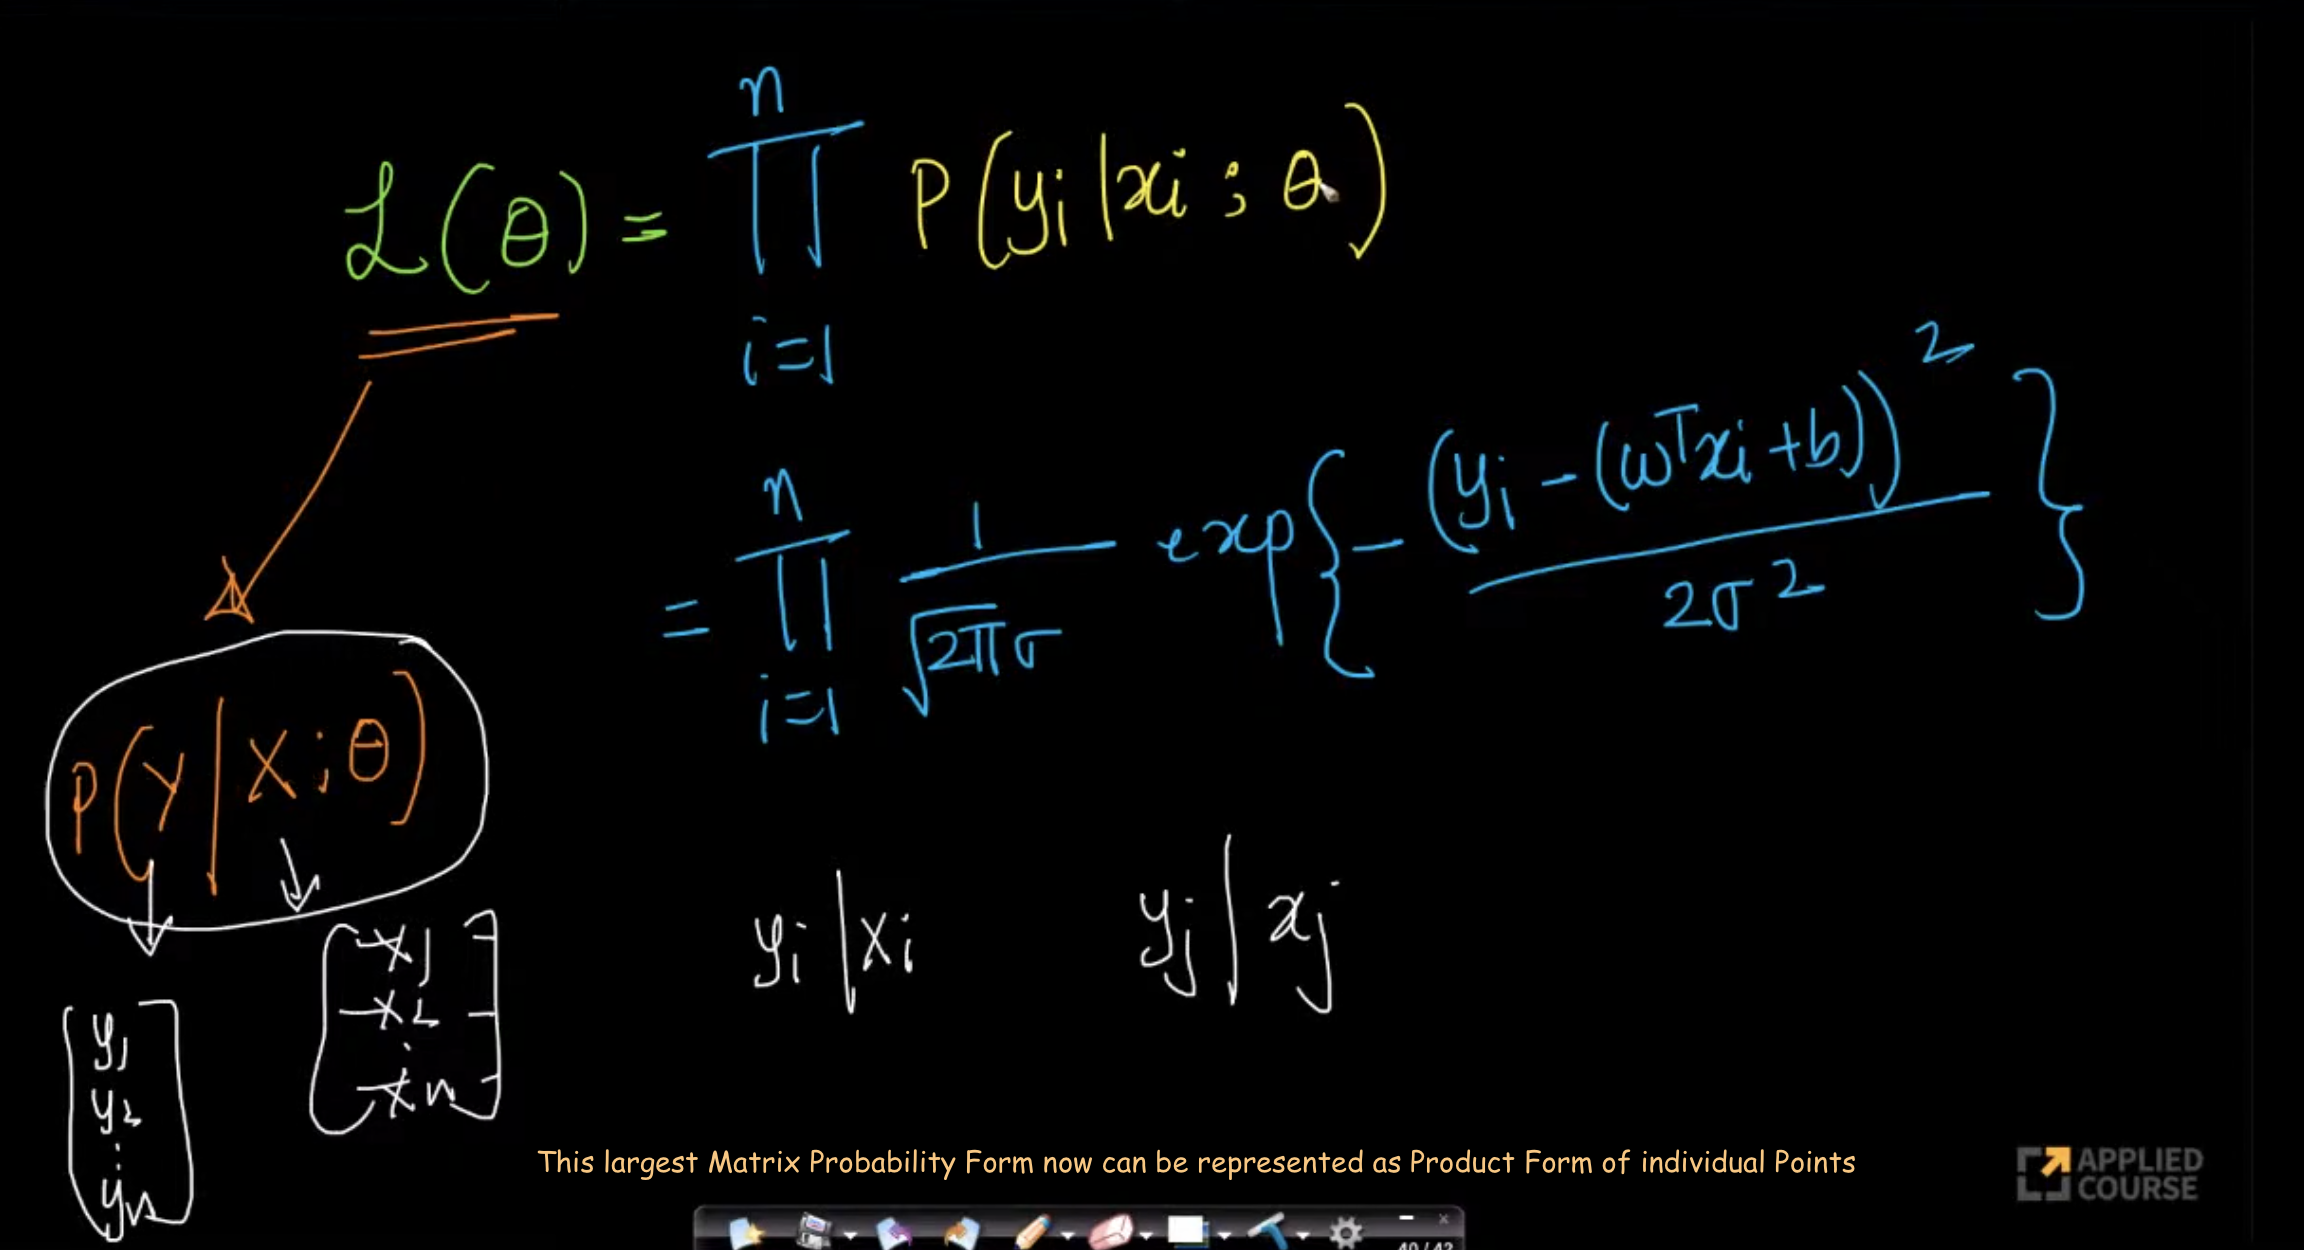 n
ℒ(θ) = ∏ P(yi|xi ; θ)
i=1
n
= ∏ 1/√2π σ exp{ - (yi - (ωᵀxi + b))² / 2σ² }
i=1
P(Y|X;θ)
yi|xi yj|xj
y1
y2
⋮
yn
x1
x2
⋮
xn
This largest Matrix Probability Form now can be represented as Product Form of individual Points
APPLIED
COURSE